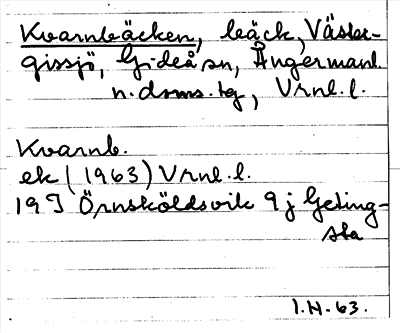 Kvarnbäcken, bäck, Väster-
gissjö, Gideå sn, Ångermanl.
n. doms. tg, Vrnl. l.
Kvarnb.
ek (1963) Vrnl. l.
19I Örnsköldsvik 9j Geting-
sta
I.H-63.